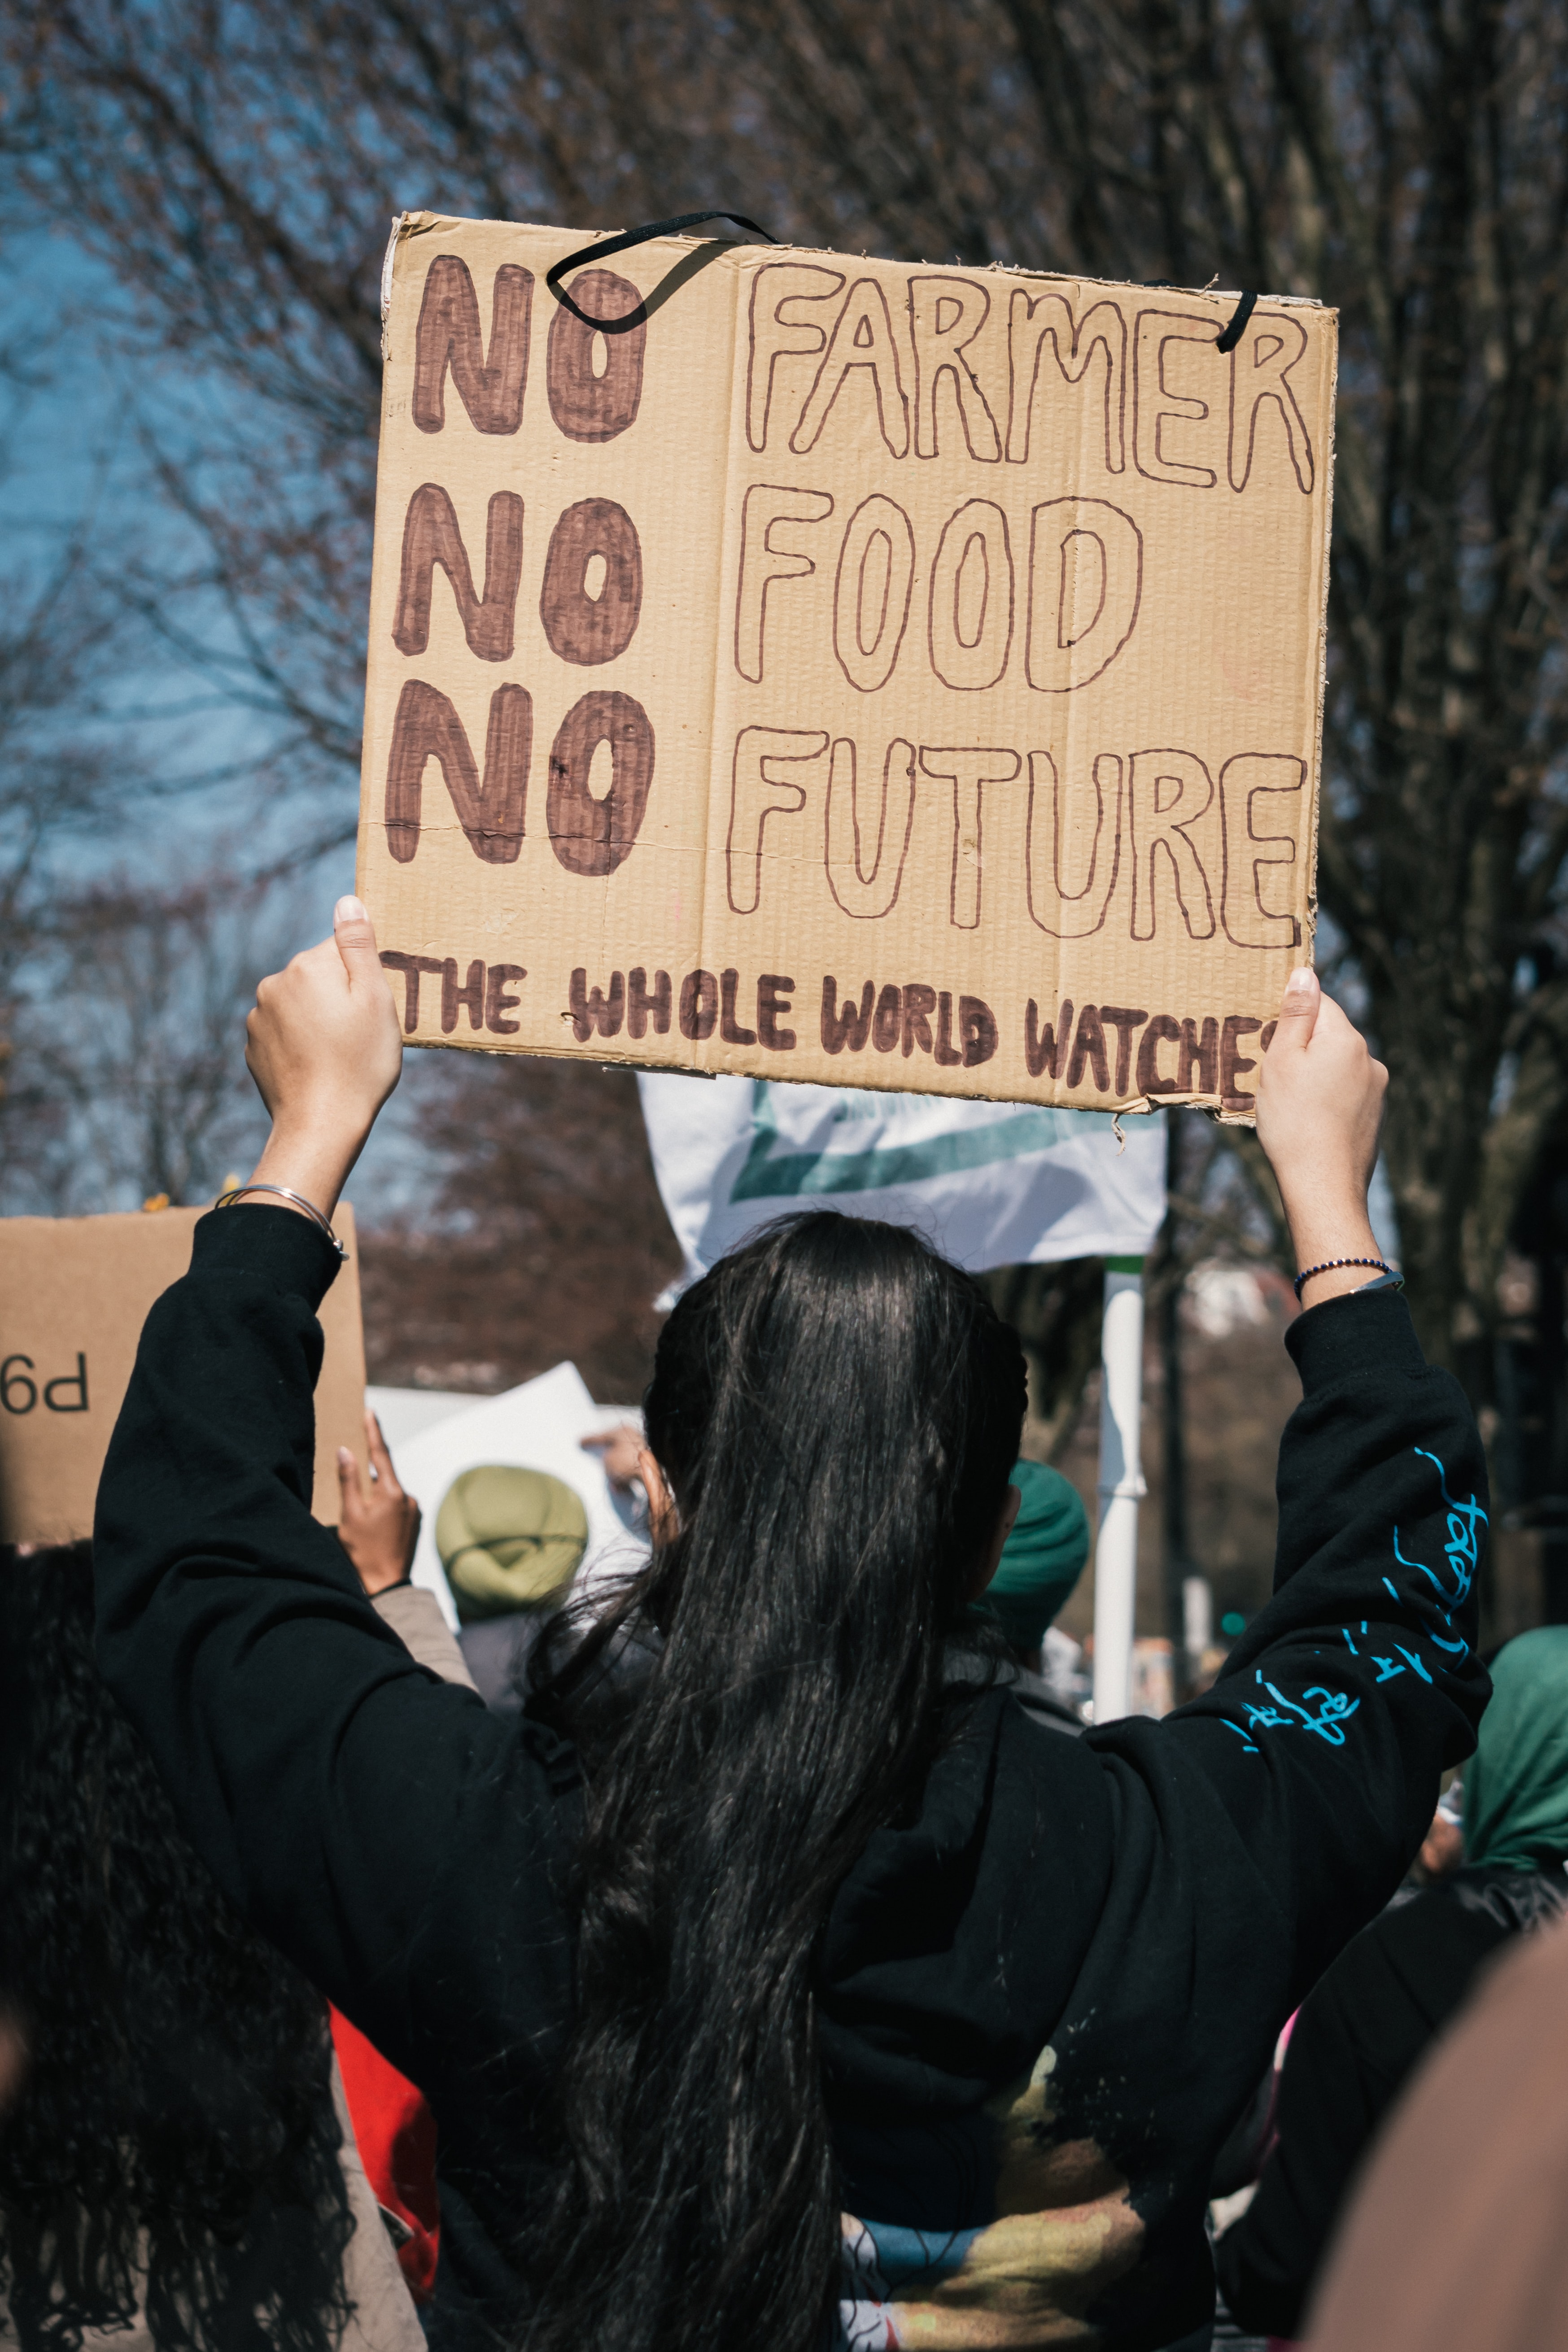 NO FARMER
NO FOOD
NO FUTURE
THE WHOLE WORLD WATCHES
P9